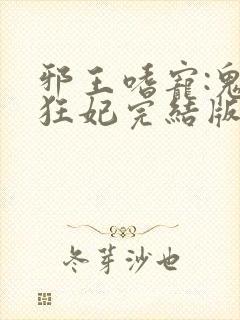 邪王嗜寵:鬼
狂妃完結版
冬芽沙也